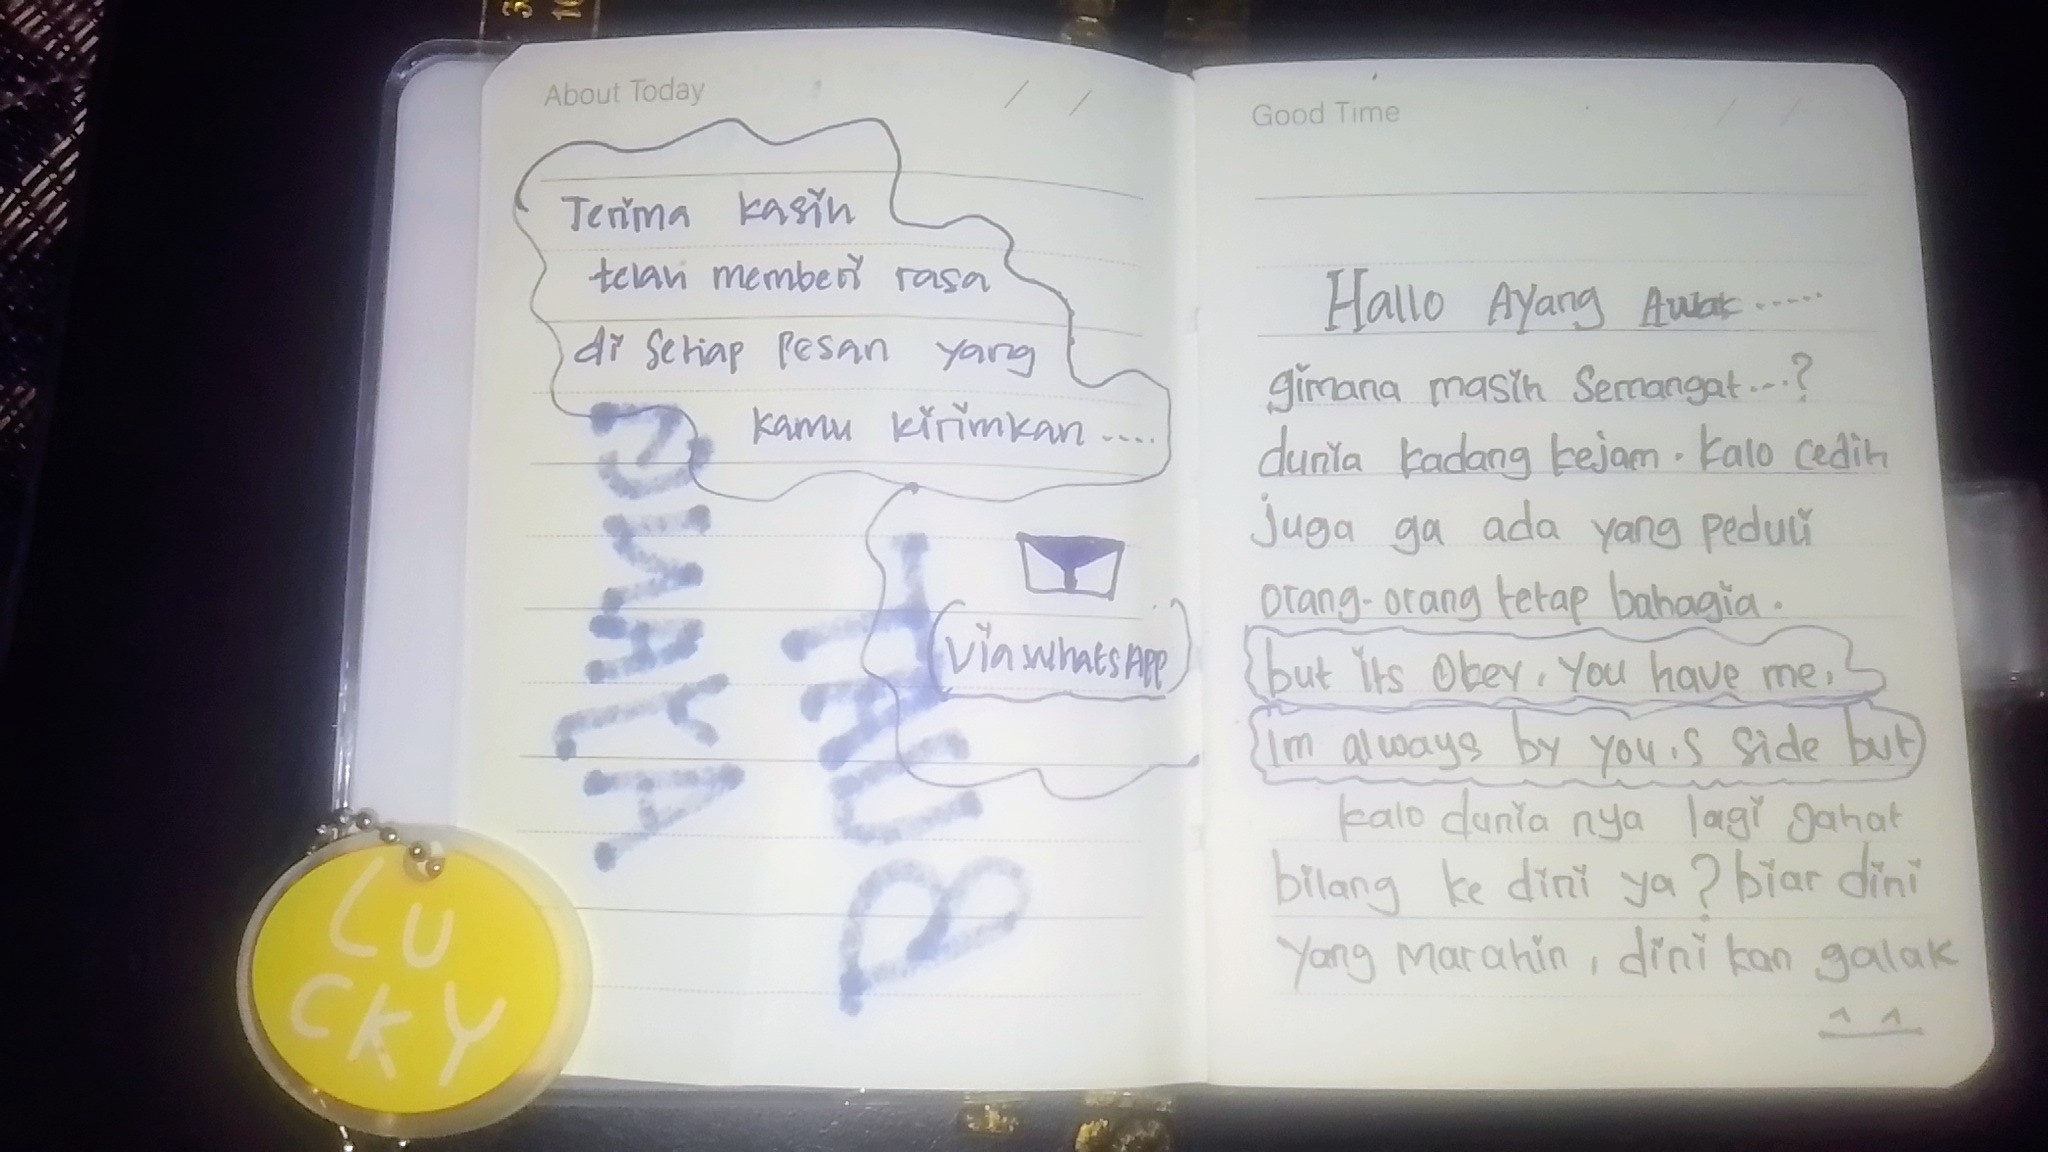 About Today / /
Terima kasih
telah memberi rasa
di setiap pesan yang
kamu kirimkan ....
Via WhatsApp
BUAT
AYANG
LU
CKY
Good Time / /
Hallo Ayang Awak .....
gimana masih semangat...?
dunia kadang kejam. kalo cedih
juga ga ada yang peduli
orang-orang tetap bahagia.
but its Okey, you have me,
im always by you,s side but
kalo dunia nya lagi jahat
bilang ke dini ya? biar dini
yang marahin, dini kan galak
^ ^